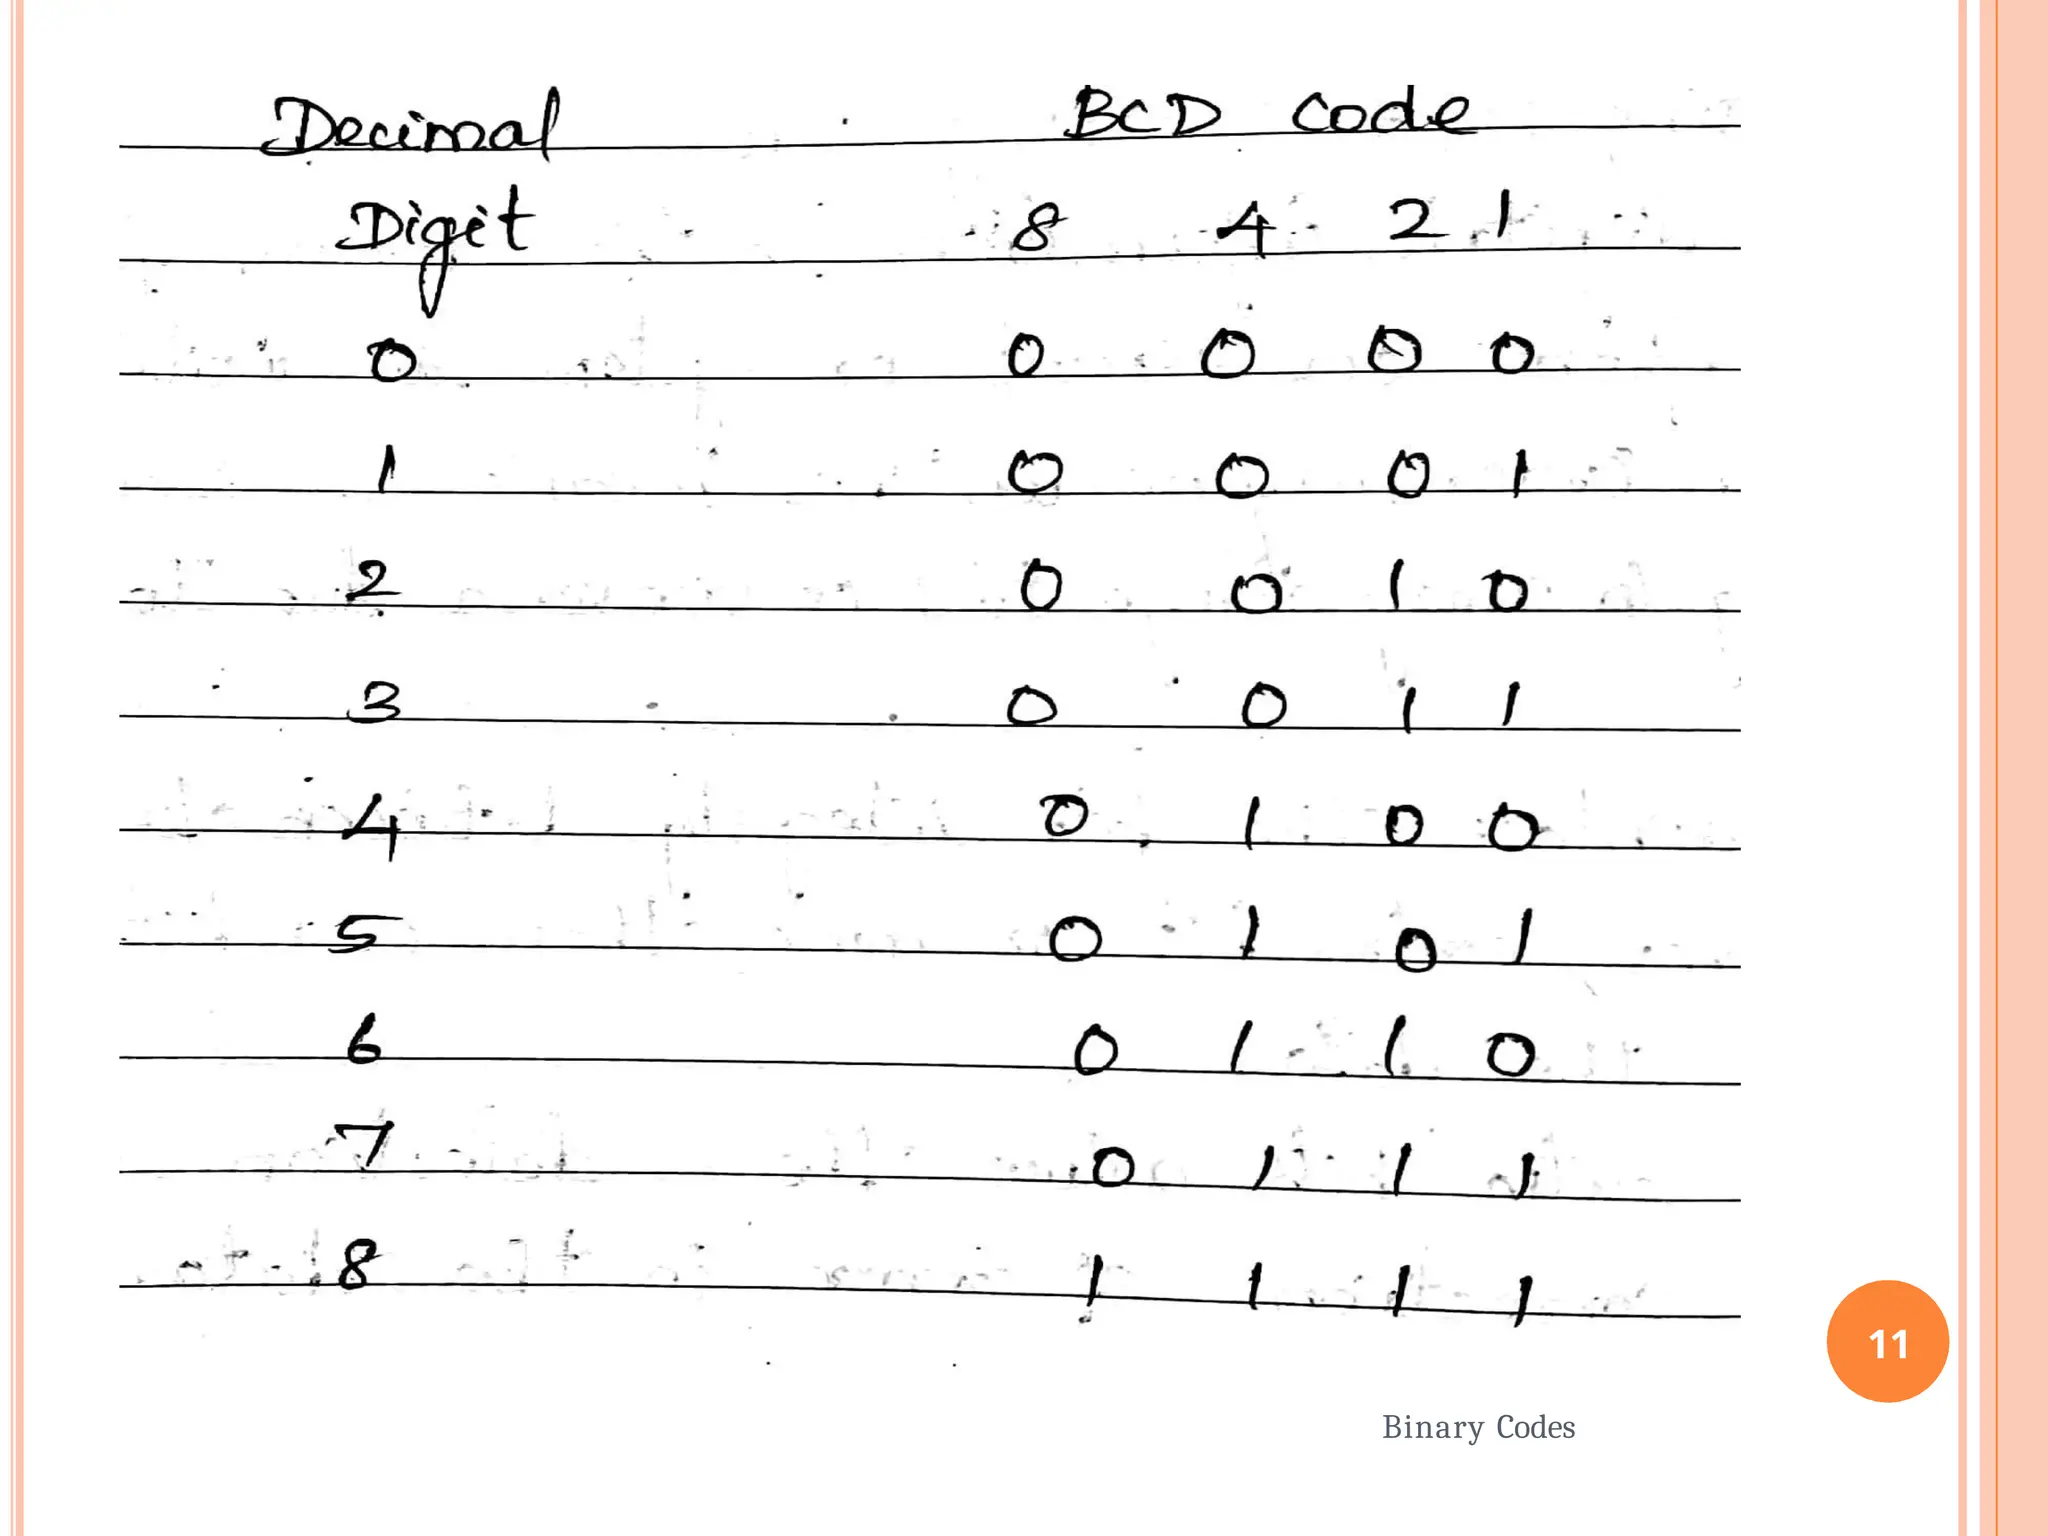 Decimal BCD Code
Digit 8 4 2 1
0 0 0 0 0
1 0 0 0 1
2 0 0 1 0
3 0 0 1 1
4 0 1 0 0
5 0 1 0 1
6 0 1 1 0
7 0 1 1 1
8 1 1 1 1
11
Binary Codes